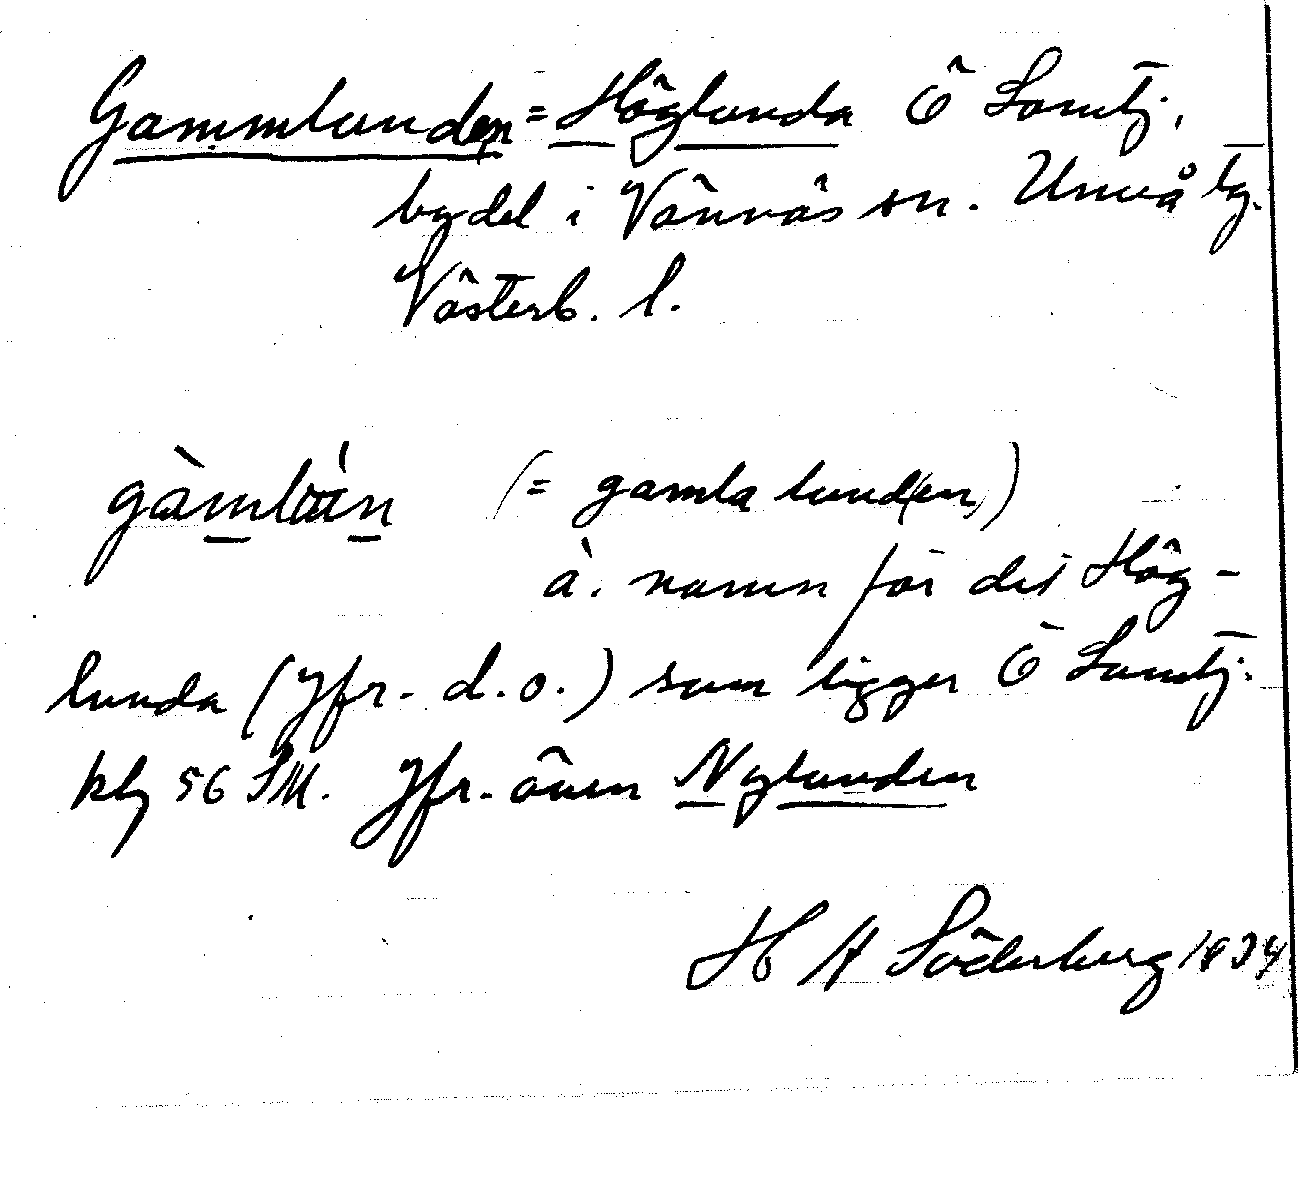 Gammlunden = Höglunda Ö Lomtj.,
bydel i Vännäs sn. Umeå tg.
Västerb. l.
(= gamla lund(en))
ä. namn för det Hög-
lunda (Jfr. d.o.) som ligger Ö Lomtj.
kbl 5G SM. Jfr. även Nylunden
H A Söderberg 1934